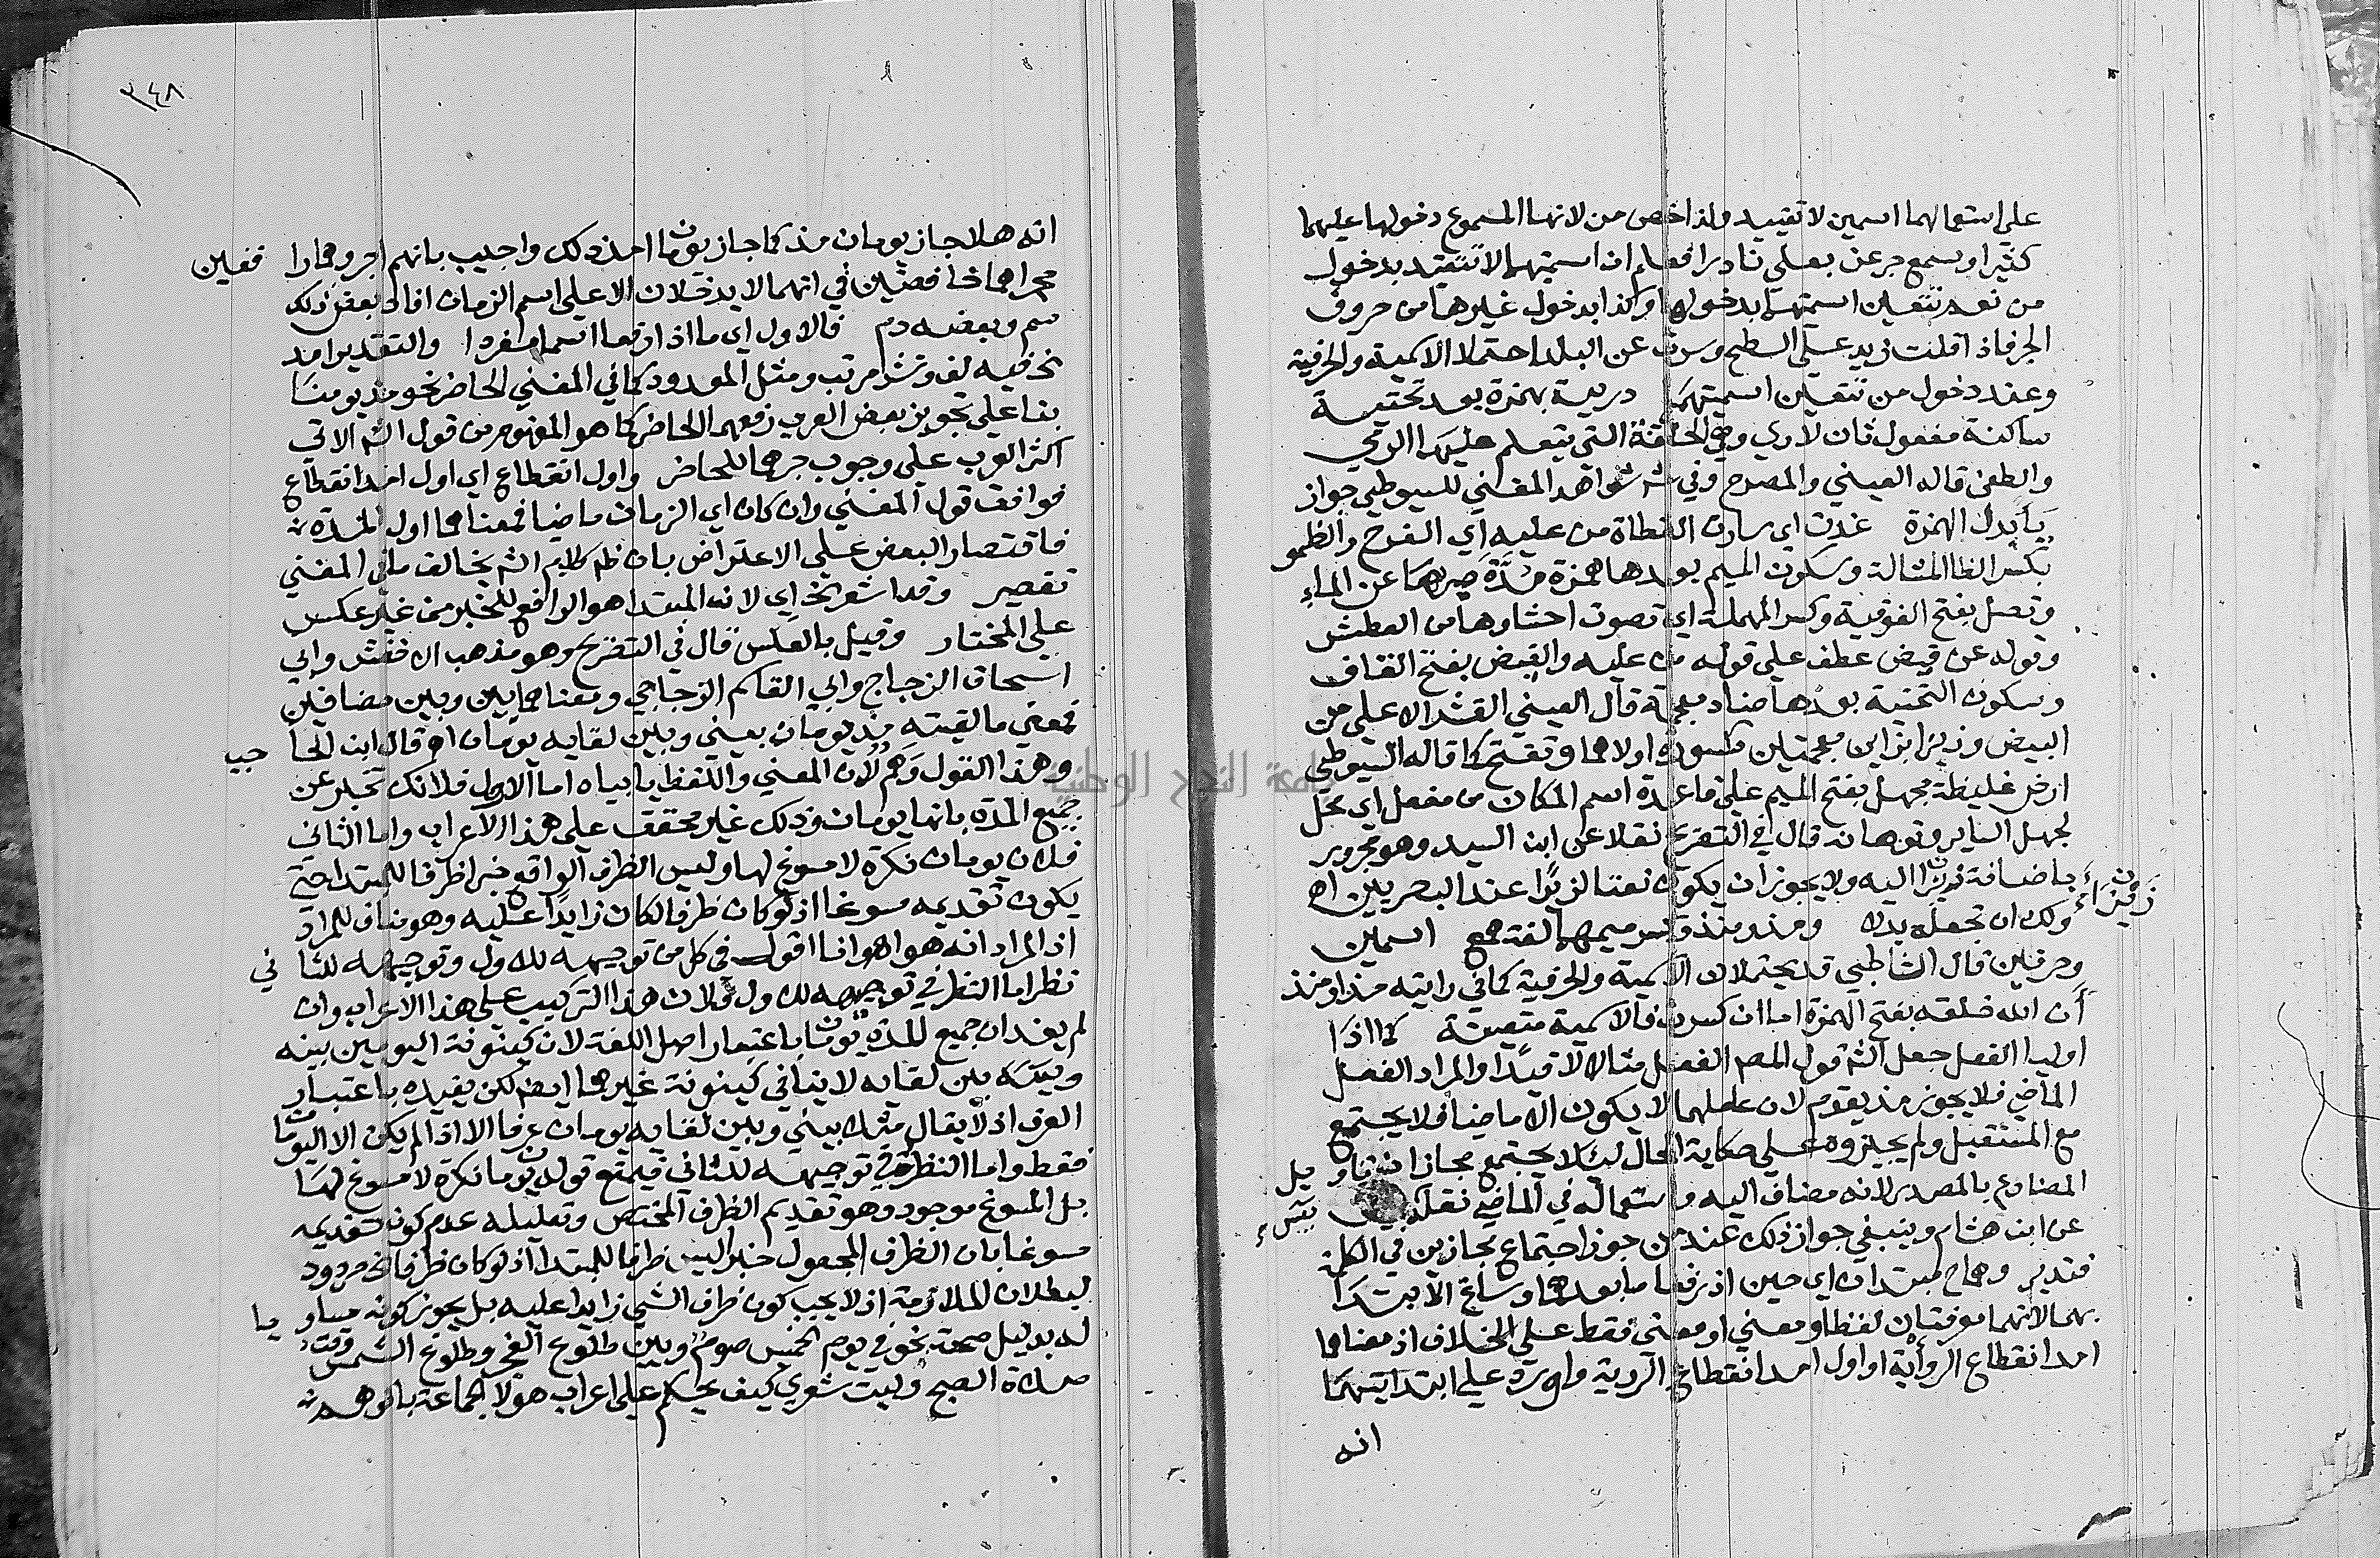 على استعمالهما اسمين لا تقييد ولذا خص من لانها المسموع دخولها عليهما
كثيرا وسمع جر عن بعلى نادرا فعلم ان اسميتهما لا تتقيد بدخول
من نعم تتعين اسميتهما بدخولها وكذا بدخول غيرها من حروف
الجر فاذا قلت زيد على السطح وسرت عن البلد احتملا الاسمية والحرفية
وعند دخول من تتعين اسميتهما دريـة بهمزة بعد تحتية
ساكنة مفعول ثان لارى وهي الحلقة التي يتعلم عليها الرمي
والطعن قاله العيني والمصرح وفي شواهد المغني للسيوطي جواز
ابدال الهمزة غدت اي سارت القطاة من عليه اي الفرخ والظمؤ
بكسر الظا المشالة وسكون الميم بعدها همزة مدة صبرها عن الماء
وتصل بفتح الفوقية وكسر المهملة اي تصوت احشاوها من العطش
وقوله عن قيض عطف على قوله من عليه والقيض بفتح القاف
وسكون التحتية بعدها ضاد معجمة قال العيني القشر الاعلى من
البيض وزيزا بزاين معجمتين مكسورة اولاهما وتفتح كما قاله السيوطي
ارض غليظة مجهل بفتح الميم على قاعدة اسم المكان من مفعل اي محل
لجهل الساير وتوهانه قال في التصريح نقلا عن ابن السيد وهو مجرور
باضافة زيزا اليه ولا يجوز ان يكون نعتا لزيزا عند البصريين اه
ولك ان تجعله بدلا ومذ ومنذ وكسر ميمهما لغة همع اسمين
وحرفين قال الشاطبي قد يحتملان الاسمية والحرفية كما في رايته مذ او منذ
أن الله خلقه بفتح الهمزة اما ان كسرت فالاسمية متعينة كما اذا
اوليا الفعل جعل الش قول المص الفعل مثالا لا قيدا والمراد الفعل
الماضي فلا يجوز مذ يقوم لان عاملهما لا يكون الا ماضيا فلا يجتمع
مع المستقبل ولم يجيزوه على حكاية الحال لئلا يجتمع مجازان تاويل
المضارع بالمصدر لانه مضاف اليه واستعماله في الماضي نقله يس
عن ابن هشام وينبغي جواز ذلك عند من جوز اجتماع مجازين في الكلمة
فتدبر وهما ح مبتدان اي حين اذ رفعا ما بعدهما وساغ الابتدا
بهما لانهما معرفتان لفظا ومعنى او معنى فقط على الخلاف اذ معناهما
امد انقطاع الرؤية او اول امد انقطاع الروية واورد على ابتدائيتهما
انه
٣٤٨
انه هلا جاز يومان مذ كما جاز يومان امد ذلك واجيب بانهم اجروهما رافعين
مجراهما خافضين في انهما لا يدخلان الا على اسم الزمان افاد بعض ذلك
سم وبعضه دم فالاول اي ما اذا رفعا اسما مفردا والتقدير امد
الخ فيه لف ونشر مرتب ومثل المعدود كما في المغني الحاضر نحو مذ يومنا
بنا على تجويز بعض العرب رفعهما الحاضر كما هو المفهوم من قول الش الاتي
اكثر العرب على وجوب جرهما للحاضر واول انقطاع اي اول امد انقطاع
فوافق قول المغني وان كان اي الزمان ماضيا فمعناهما اول المدة
فاقتصار البعض على الاعتراض بان ظم كلام الش يخالف ما في المغني
تقصير وقد اشعر الخ اي لان المبتدا هو الرافع للخبر من غير عكس
على المختار وقيل بالعكس قال في التصريح وهو مذهب الاخفش وابي
اسحاق الزجاج وابي القاسم الزجاجي ومعناهما بين وبين مضافين
فمعنى ما لقيته مذ يومان بيني وبين لقايه يومان اه قال ابن الحاجب
وهذا القول وهم لان المعنى واللفظ يابياه اما الاول فلانك تخبر عن
جميع المدة بانها يومان وذلك غير محقق على هذا الاعراب واما الثاني
فلان يومان نكرة لا مسوغ لها وليس الظرف الواقع خبرا ظرفا للمبتدا حتى
يكون تقديمه مسوغا اذ لو كان ظرفا لكان زايدا عليه وهو مناف للمراد
اذ المراد انه هو اه وانا اقول في كل من توجيهه للاول وتوجيهه للثاني
نظر اما النظر في توجيهه للاول فلان هذا التركيب على هذا الاعراب وان
لم يفد ان جميع المدة يومان باعتبار اصل اللغة لان كينونة اليومين بينه
وبين لقايه لا ينافي كينونة غيرهما ايضا لكن يفيده باعتبار
العرف اذ لا يقال مثلا بيني وبين لقايه يومان عرفا الا اذا لم يكن الا اليومان
فقط واما النظر في توجيهه للثاني فيمنع قوله يومان نكرة لا مسوغ لها
بل المسوغ موجود وهو تقديم الظرف المختص وتعليله عدم كون تقديمه
مسوغا بان الظرف المجعول خبرا ليس ظرفا للمبتدا اذ لو كان ظرفا الخ مردود
لبطلان الملازمة اذ لا يجب كون ظرف الشي زايدا عليه بل يجوز كونه مساويا
له بدليل صحة نحو في يوم الخميس صوم وبين طلوع الفجر وطلوع الشمس وقت
صلاة الصبح وليت شعري كيف يحكم على اعراب هولا الجماعة بانه وهم